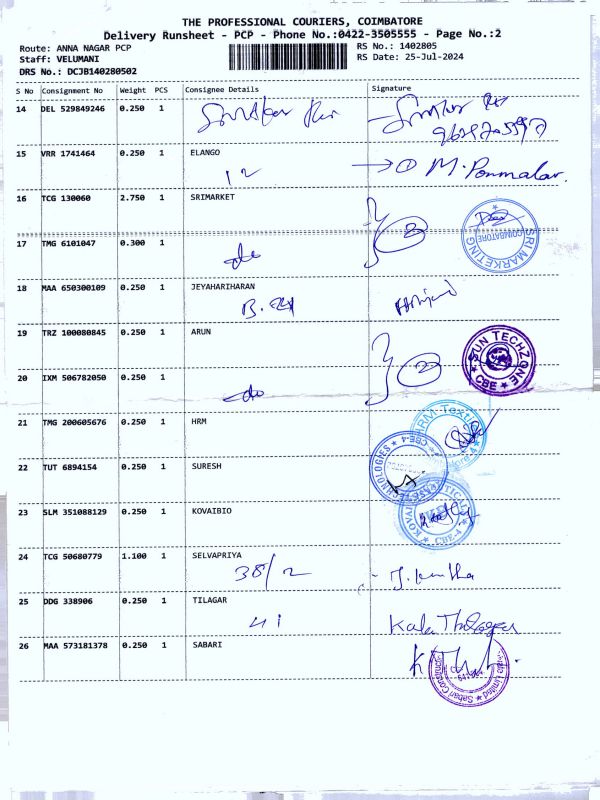 THE PROFESSIONAL COURIERS, COIMBATORE
Delivery Runsheet - PCP - Phone No.:0422-3505555 - Page No.:2
Route: ANNA NAGAR PCP RS No.: 1402805
Staff: VELUMANI RS Date: 25-Jul-2024
DRS No.: DCJB140280502
S No Consignment No Weight PCS Consignee Details Signature
14 DEL 529849246 0.250 1
15 VRR 1741464 0.250 1 ELANGO
12 M. Ponmalar.
16 TCG 130060 2.750 1 SRIMARKET
SRI MARKETING COIMBATORE
17 TMG 6101047 0.300 1
do
18 MAA 650300109 0.250 1 JEYAHARIHARAN
19 TRZ 100080845 0.250 1 ARUN
2
SUN TECHZONE CBE
20 IXM 506782050 0.250 1
do
21 TMG 200605676 0.250 1 HRM
22 TUT 6894154 0.250 1 SURESH
23 SLM 351088129 0.250 1 KOVAIBIO
24 TCG 50680779 1.100 1 SELVAPRIYA
38/2
25 DDG 338906 0.250 1 TILAGAR
41
26 MAA 573181378 0.250 1 SABARI